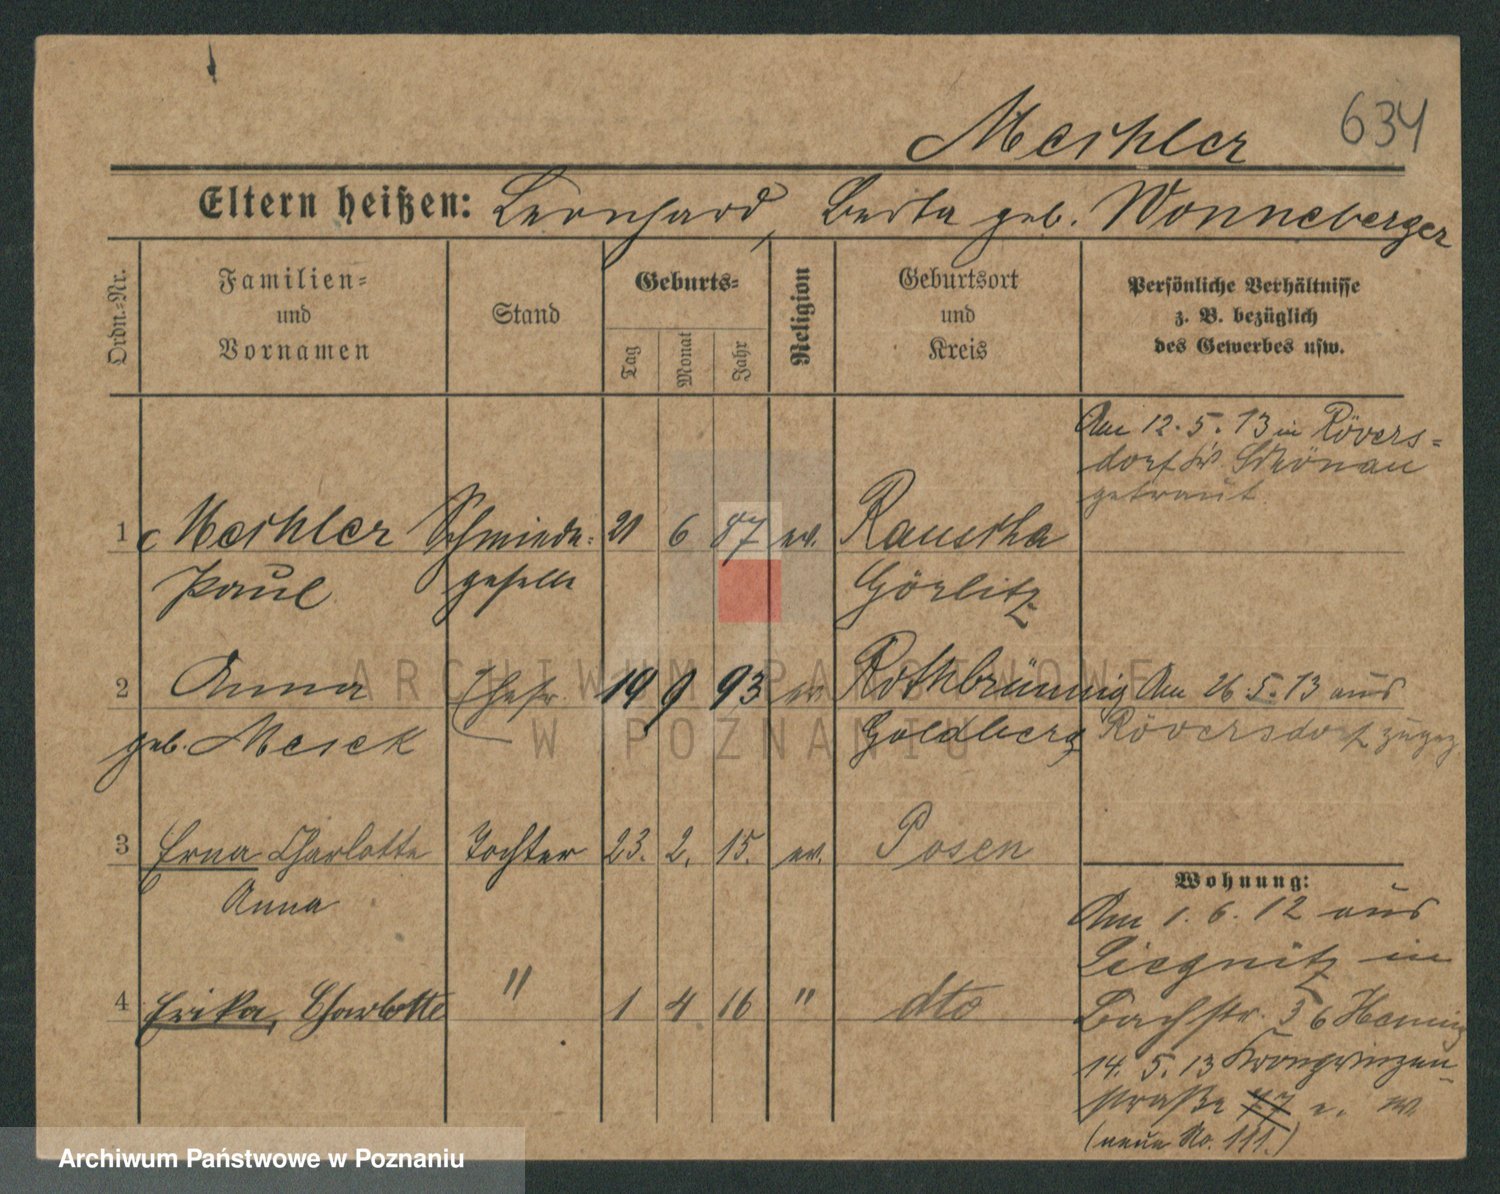 634
Meihler
Eltern heißen: Bernhard, Berta geb. Wonneberger
Ordn.-Nr.
Familien-
und
Vornamen
Stand
Geburts-
Tag
Monat
Jahr
Religion
Geburtsort
und
Kreis
Persönliche Verhältnisse
z. B. bezüglich
des Gewerbes usw.
Am 12. 5. 13 in Rövers-
dorf Krs Schönau
getraut.
1 Meihler Schmiede- 21 6 87 ev. Rauscha
Paul geselle Görlitz
2 Anna Ehefr. 19 9 93 ev. Rothbrünnig Am 26. 5. 13 aus
geb. Goldberg Röversdorf zugez.
3 Erna Charlotte Tochter 23. 2. 15. ev. Posen
Anna
Wohnung:
Am 1. 6. 12 aus
Liegnitz in
4 Erika, Charlotte " 1 4 16 " dto
Bachstr. 36
14. 5. 13 Kronprinzen-
straße 77
(neue No. 111.)
ARCHIWUM PAŃSTWOWE
W POZNANIU
Archiwum Państwowe w Poznaniu